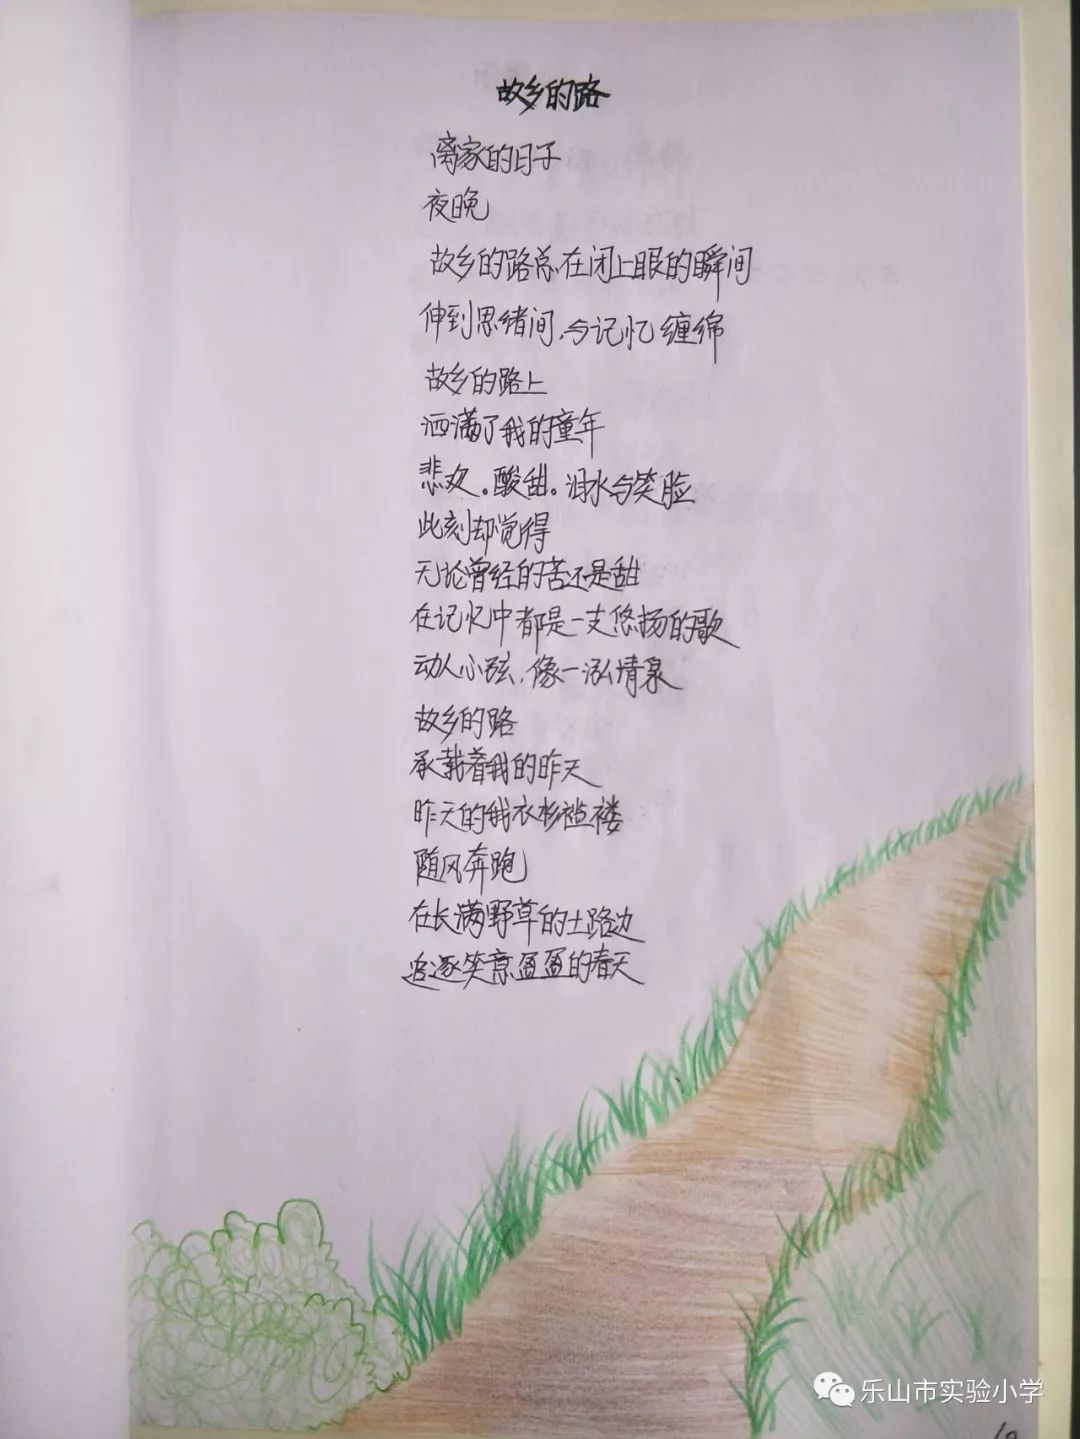 故乡的路
离家的日子
夜晚
故乡的路总在闭上眼的瞬间
伸到思绪间,与记忆缠绵
故乡的路上
洒满了我的童年
悲欢。酸甜。泪水与笑脸
此刻却觉得
无论曾经的苦还是甜
在记忆中都是一支悠扬的歌
动人心弦,像一泓情泉
故乡的路
承载着我的昨天
昨天的我衣衫褴褛
随风奔跑
在长满野草的土路边
追逐笑意盈盈的春天
乐山市实验小学